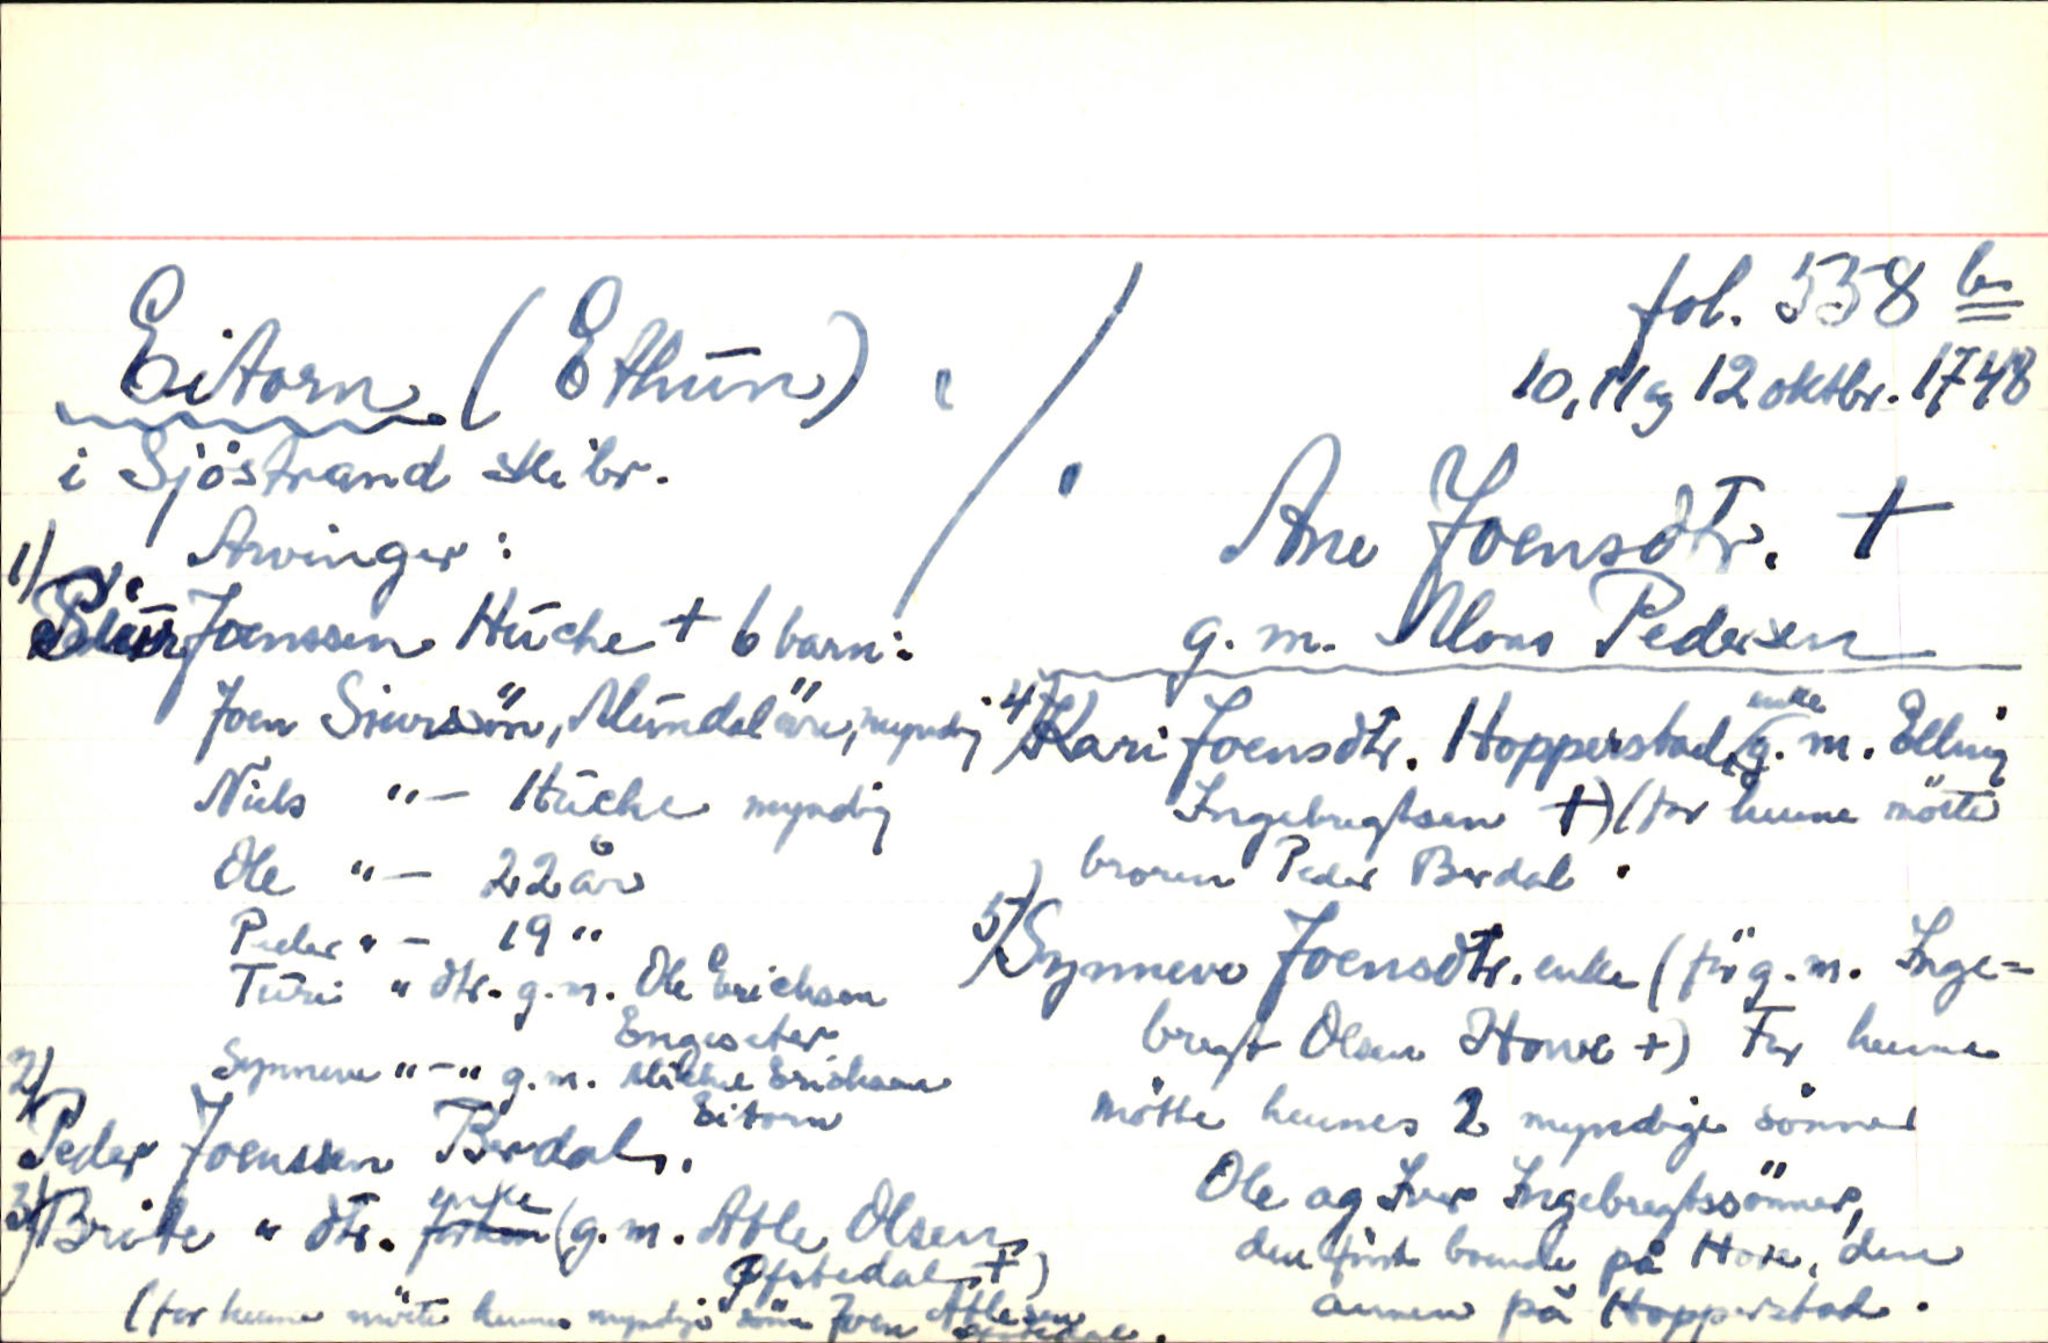 Eitorn (Ethun)
i Sjöstrand skibr.
fol. 558 b
10, 11 og 12 oktbr. 1748
Ane Joensdtr. +
g. m. Mons Pedersen
Arvinger:
1) Siur Joenssen Hüche + 6 barn:
Joen Siursön, Mündal, myndig
Niels "— Hüche myndig
Ole "— 22 år
Peder "— 19 "
Turi " dtr. g.m. Ole Erichsen
Engeseter
Synneve "—" g.m. Mikkel Erichsen
Eitorn
2) Peder Joenssen Berdal.
3) Brite " dtr. enke (g.m. Atle Olsen
Ofstedal +)
(for henne mötte hennes myndige sönn Joen Atlesen
4) Kari Joensdtr. Hopperstad, enke (g. m. Elling
Ingebregtsen +) (for henne mötte
broren Peder Berdal.
5) Synneve Joensdtr. enke (för g. m. Inge=
bregt Olsen Howe +) For henne
mötte hennes 2 myndige sönner
Ole og Iver Ingebregtssönner,
den först boende på Hove, den
annen på Hopperstad.